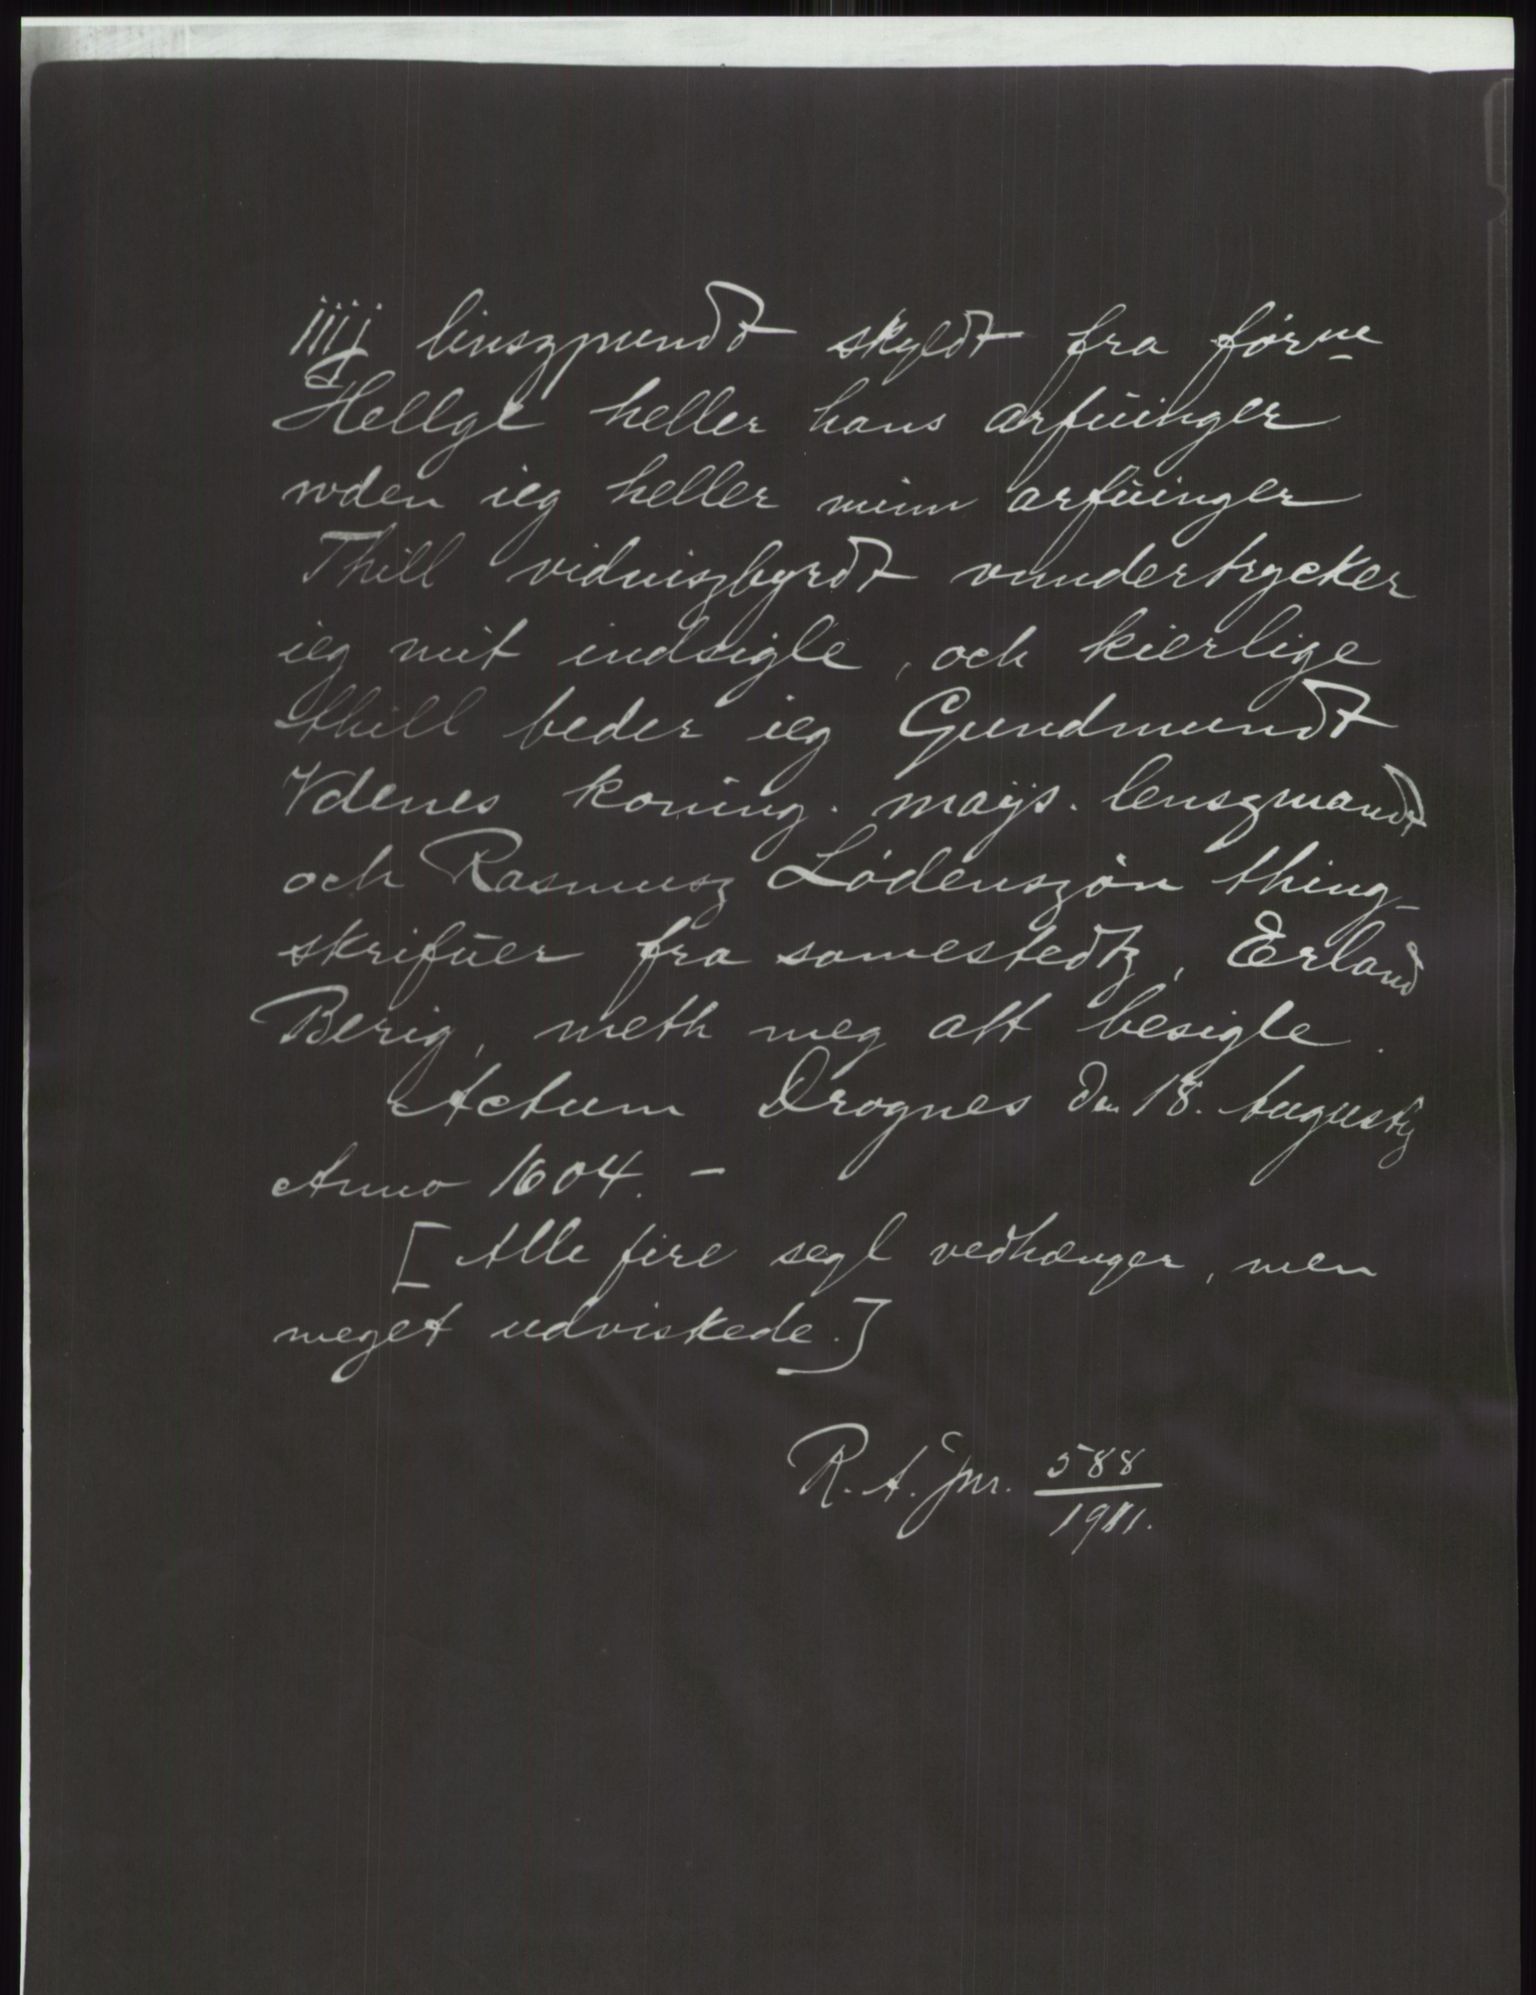 iiij linszpundt skyldt fra førne
Hellge heller hans arfůinger
vden ieg heller minn arfůinger
Thill vidniszbyrdt vnndertrycker
ieg mit indsigle, och kierlige
thill beder ieg Gundmundt
Vdenes koning. mays. lenszmandt
och Rasmusz Lødenszøn thing-
skrifůer fra samestedtz, Erland
Berig, meth meg att besigle.
Actum Drognes den 18. Augustij
Anno 1604. –
[Alle fire segl vedhænger, men
meget udviskede.]
R. A. jnr. 588
1911.